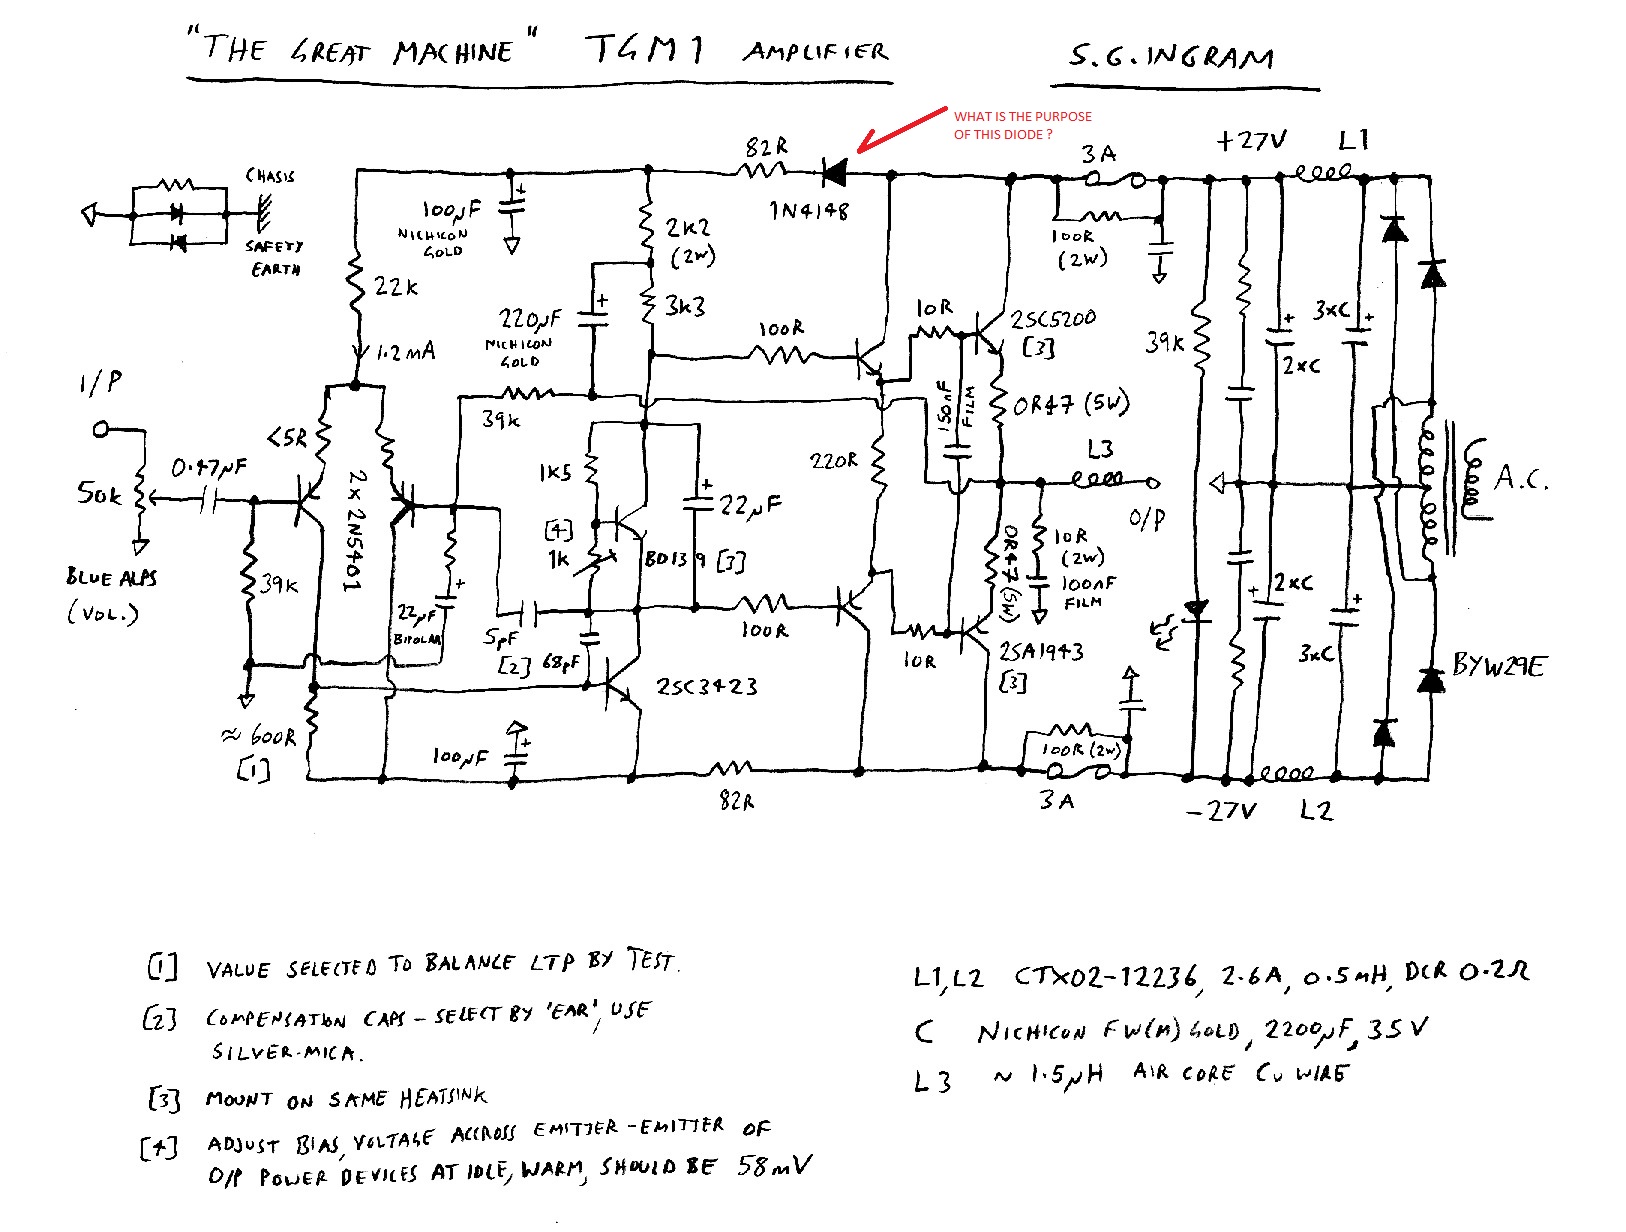 "THE GREAT MACHINE" TGM1 AMPLIFIER
S.G. INGRAM
WHAT IS THE PURPOSE
OF THIS DIODE ?
+27V
L1
82R
3A
CHASIS
SAFETY
EARTH
1N4148
100µF
NICHICON
GOLD
2k2
(2W)
100R
(2W)
22k
3k3
10R
2SC5200
[3]
3xC
220µF
NICHICON
GOLD
100R
39k
2xC
1.2mA
I/P
150nF
FILM
0R47 (5W)
39k
<5R
1k5
220R
L3
0.47µF
50k
2 x 2N5401
22µF
O/P
A.C.
[4]
1k
BD139 [3]
0R47(5W)
10R
(2W)
100nF
FILM
BLUE ALPS
(VOL.)
39k
22µF
BIPOLAR
5pF
[2]
68pF
100R
10R
2xC
3xC
2SA1943
[3]
BYW29E
2SC3423
≈ 600R
[1]
100µF
100R (2W)
82R
3A
-27V
L2
[1] VALUE SELECTED TO BALANCE LTP BY TEST.
[2] COMPENSATION CAPS - SELECT BY 'EAR', USE
SILVER-MICA.
[3] MOUNT ON SAME HEATSINK
[4] ADJUST BIAS, VOLTAGE ACCROSS EMITTER-EMITTER OF
O/P POWER DEVICES AT IDLE, WARM, SHOULD BE 58mV
L1, L2 CTX02-12236, 2.6A, 0.5mH, DCR 0.2Ω
C NICHICON FW(M) GOLD, 2200µF, 35V
L3 ~ 1.5µH AIR CORE Cu WIRE